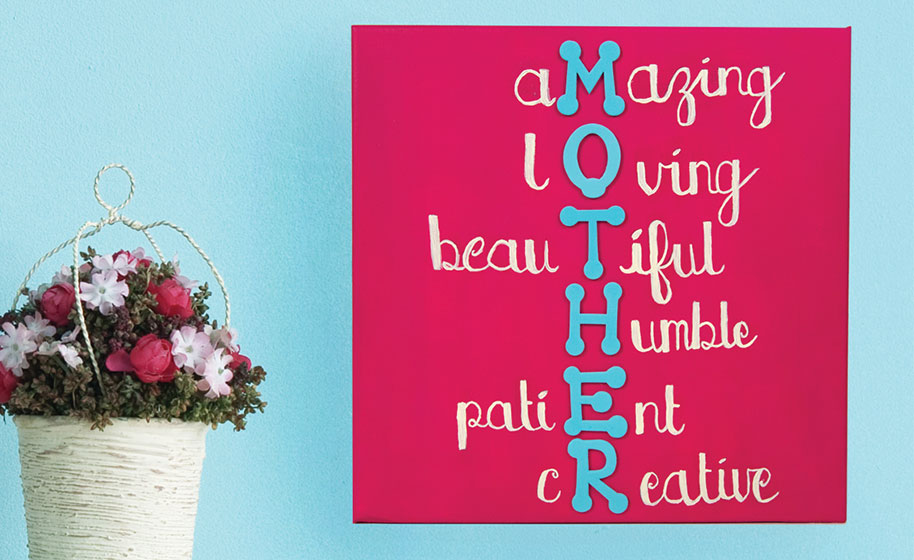 aMazing
lOving
beauTiful
Humble
patiEnt
cReative